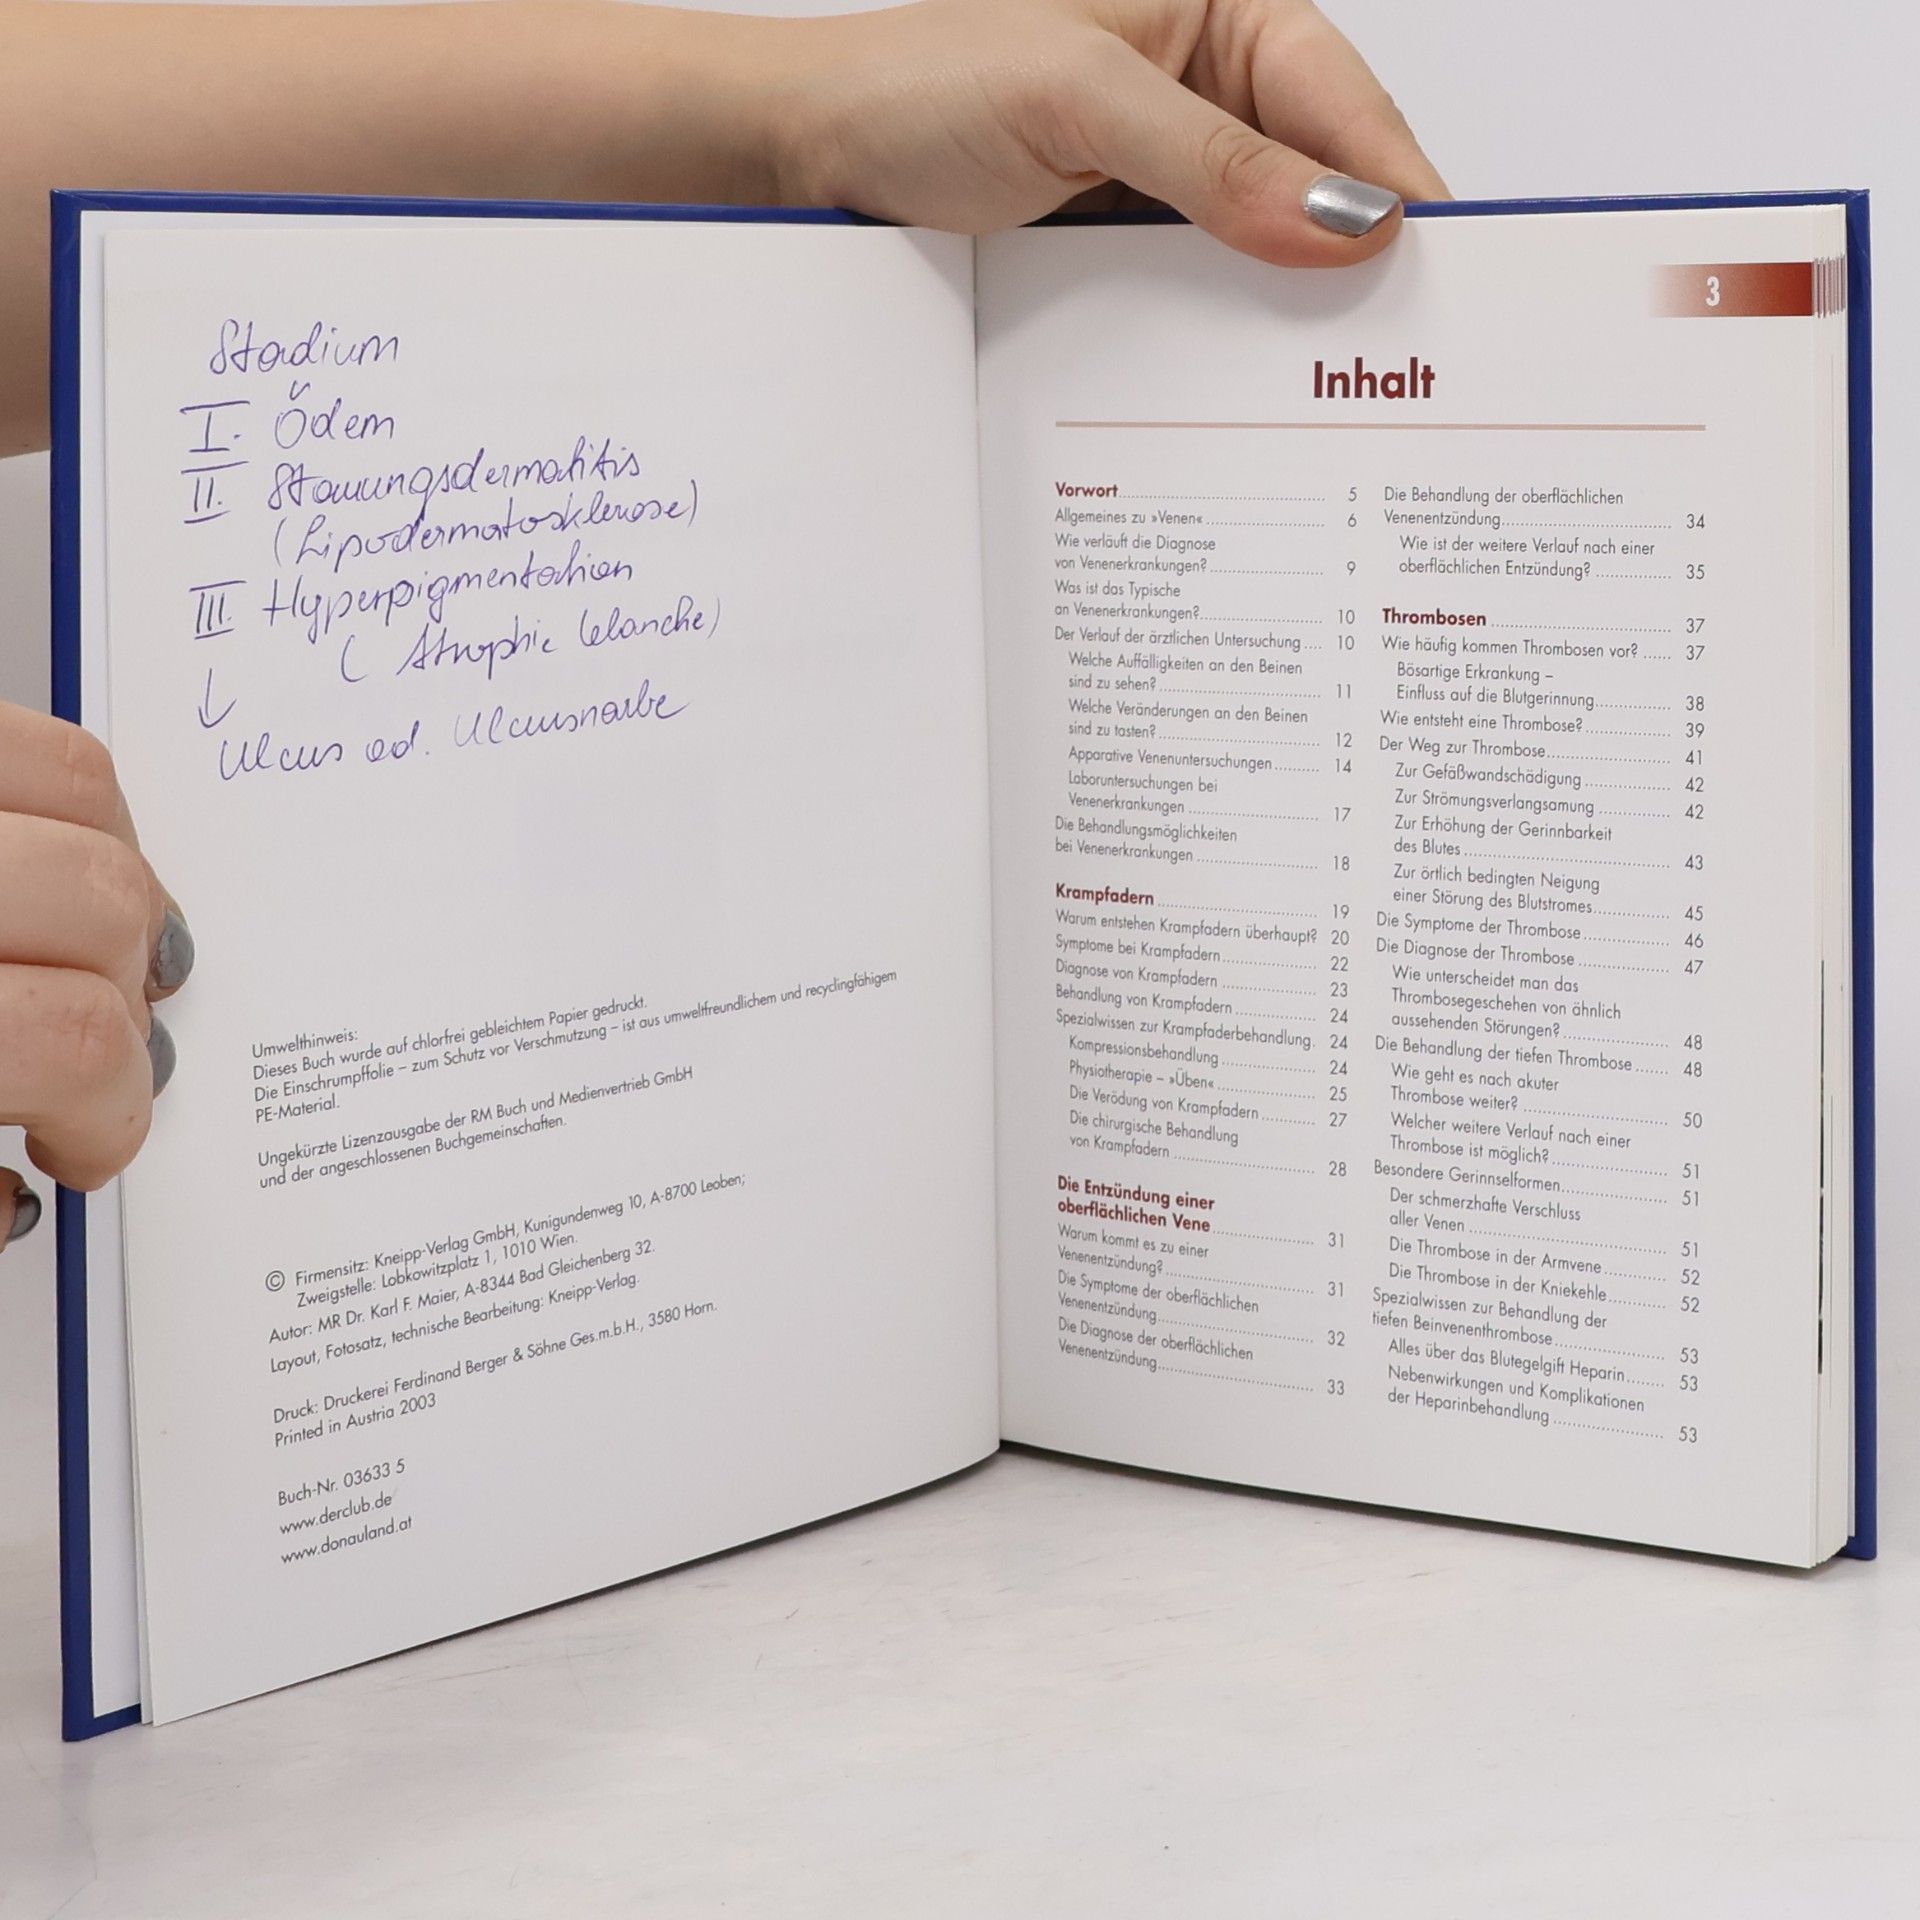 Stadium
I. Ödem
II. Stauungsdermatitis
(Lipodermatosklerose)
III. Hyperpigmentation
( Atrophie blanche)
↓
Ulcus od. Ulcusnarbe
Umwelthinweis:
Dieses Buch wurde auf chlorfrei gebleichtem Papier gedruckt.
Die Einschrumpffolie – zum Schutz vor Verschmutzung – ist aus umweltfreundlichem und recyclingfähigem
PE-Material.
Ungekürzte Lizenzausgabe der RM Buch und Medienvertrieb GmbH
und der angeschlossenen Buchgemeinschaften.
© Firmensitz: Kneipp-Verlag GmbH, Kunigundenweg 10, A-8700 Leoben;
Zweigstelle: Lobkowitzplatz 1, 1010 Wien.
Autor: MR Dr. Karl F. Maier, A-8344 Bad Gleichenberg 32.
Layout, Fotosatz, technische Bearbeitung: Kneipp-Verlag.
Druck: Druckerei Ferdinand Berger & Söhne Ges.m.b.H., 3580 Horn.
Printed in Austria 2003
Buch-Nr. 03633 5
www.derclub.de
www.donauland.at
3
Inhalt
Vorwort 5
Allgemeines zu »Venen« 6
Wie verläuft die Diagnose
von Venenerkrankungen? 9
Was ist das Typische
an Venenerkrankungen? 10
Der Verlauf der ärztlichen Untersuchung 10
Welche Auffälligkeiten an den Beinen
sind zu sehen? 11
Welche Veränderungen an den Beinen
sind zu tasten? 12
Apparative Venenuntersuchungen 14
Laboruntersuchungen bei
Venenerkrankungen 17
Die Behandlungsmöglichkeiten
bei Venenerkrankungen 18
Krampfadern 19
Warum entstehen Krampfadern überhaupt? 20
Symptome bei Krampfadern 22
Diagnose von Krampfadern 23
Behandlung von Krampfadern 24
Spezialwissen zur Krampfaderbehandlung. 24
Kompressionsbehandlung 24
Physiotherapie – »Üben« 25
Die Verödung von Krampfadern 27
Die chirurgische Behandlung
von Krampfadern 28
Die Entzündung einer
oberflächlichen Vene 31
Warum kommt es zu einer
Venenentzündung? 31
Die Symptome der oberflächlichen
Venenentzündung 32
Die Diagnose der oberflächlichen
Venenentzündung 33
Die Behandlung der oberflächlichen
Venenentzündung 34
Wie ist der weitere Verlauf nach einer
oberflächlichen Entzündung? 35
Thrombosen 37
Wie häufig kommen Thrombosen vor? 37
Bösartige Erkrankung –
Einfluss auf die Blutgerinnung 38
Wie entsteht eine Thrombose? 39
Der Weg zur Thrombose 41
Zur Gefäßwandschädigung 42
Zur Strömungsverlangsamung 42
Zur Erhöhung der Gerinnbarkeit
des Blutes 43
Zur örtlich bedingten Neigung
einer Störung des Blutstromes 45
Die Symptome der Thrombose 46
Die Diagnose der Thrombose 47
Wie unterscheidet man das
Thrombosegeschehen von ähnlich
aussehenden Störungen? 48
Die Behandlung der tiefen Thrombose 48
Wie geht es nach akuter
Thrombose weiter? 50
Welcher weitere Verlauf nach einer
Thrombose ist möglich? 51
Besondere Gerinnselformen 51
Der schmerzhafte Verschluss
aller Venen 51
Die Thrombose in der Armvene 52
Die Thrombose in der Kniekehle 52
Spezialwissen zur Behandlung der
tiefen Beinvenenthrombose 53
Alles über das Blutegelgift Heparin 53
Nebenwirkungen und Komplikationen
der Heparinbehandlung 53